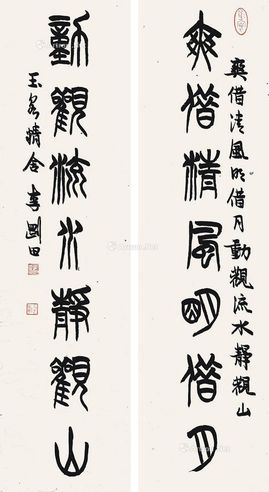 爽借清風明借月
爽借清風明借月動觀流水靜觀山
動觀流水靜觀山
李剛田